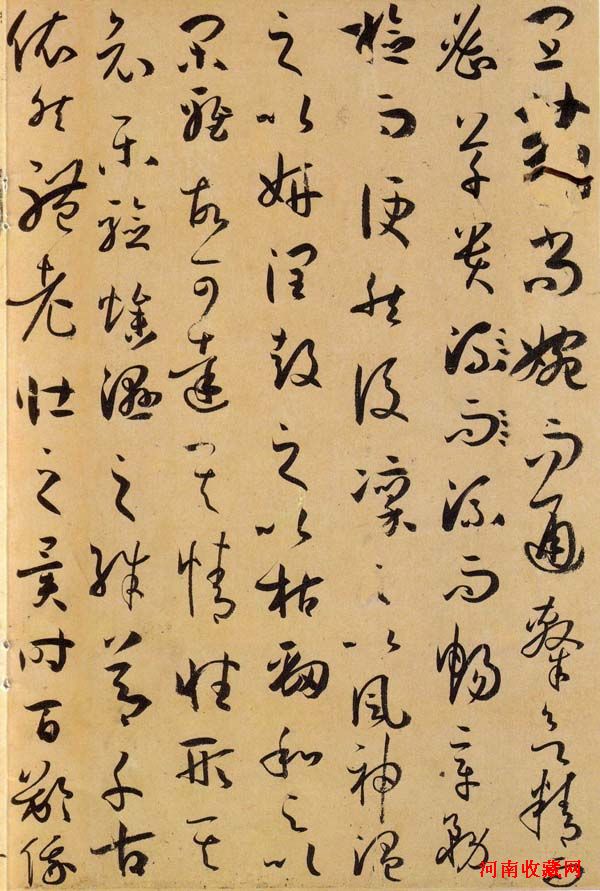 宜篆尚婉而通隸欲精而
密草貴流而流而暢章務
檢而便然後凜之以風神溫
之以妍潤鼓之以枯勁和之以
閑雅故可達其情性形其
哀樂驗燥濕之殊節千古
依然體老壯之異時百齡俄
河南收藏网